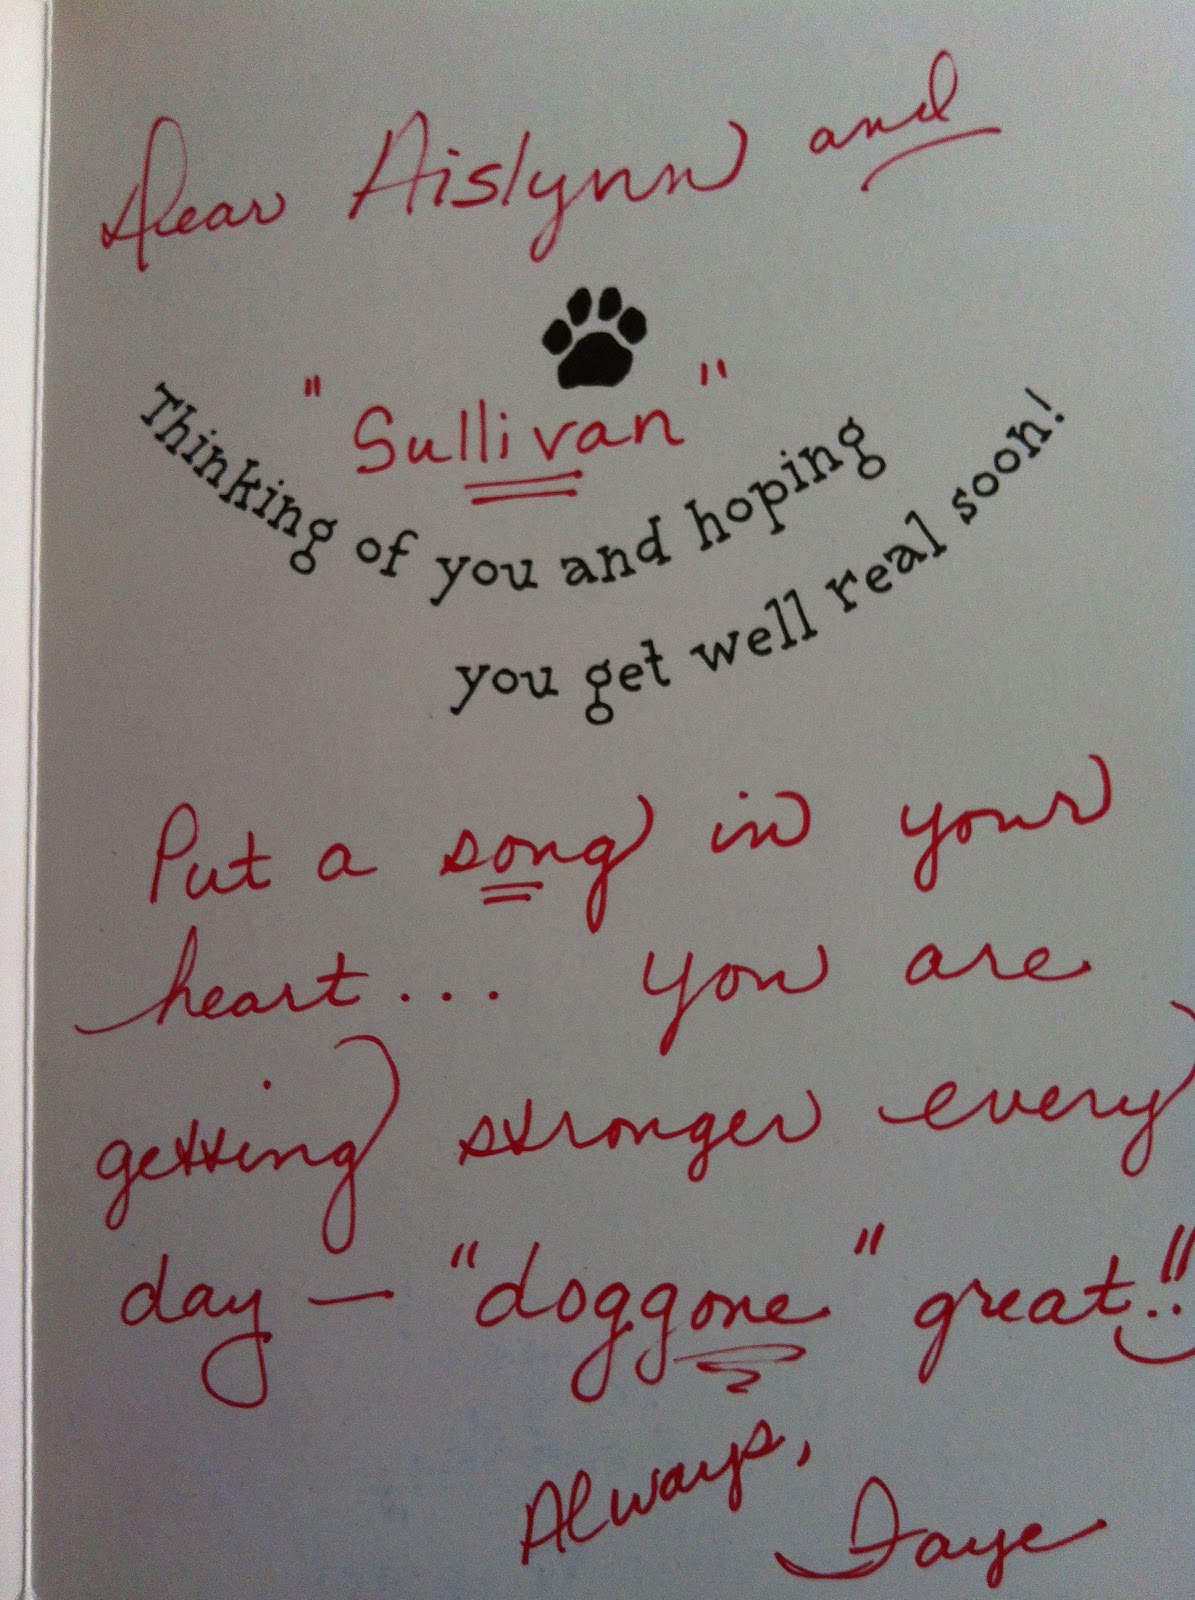 Dear Aislynn and
"Sullivan"
Thinking of you and hoping
you get well real soon!
Put a song in your
heart... you are
getting stronger every
day — "doggone" great!!
Always,
Faye